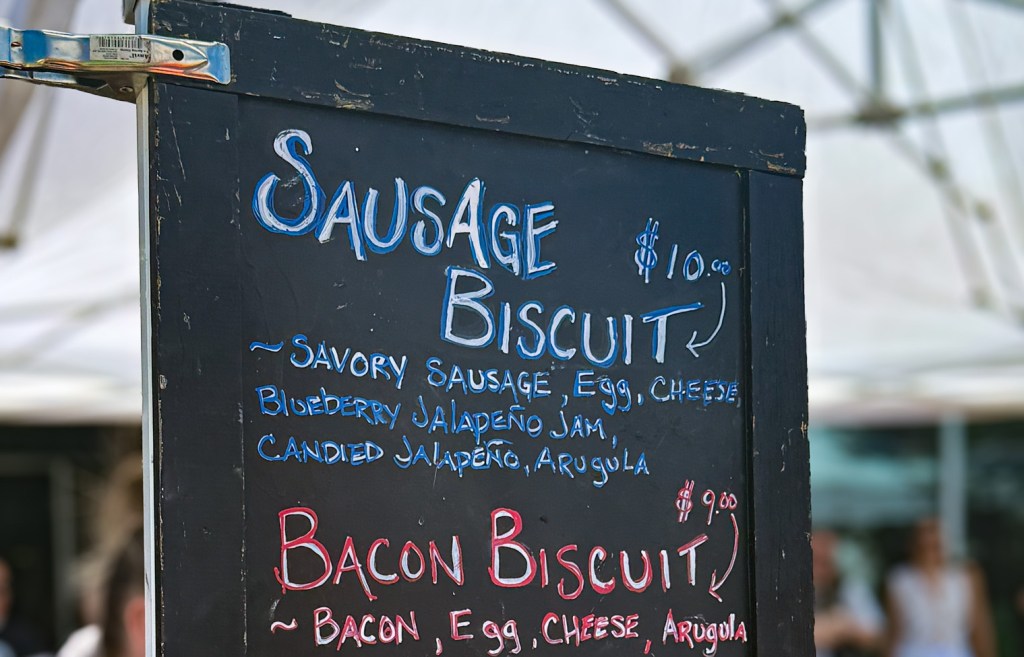 SAUSAGE
$10.00
BISCUIT
~ SAVORY SAUSAGE, Egg, CHEESE,
BLUEBERRY JALAPEÑO JAM,
CANDIED JALAPEÑO, ARUGULA
$9.00
BACON BISCUIT
~ BACON, Egg, CHEESE, ARUGULA